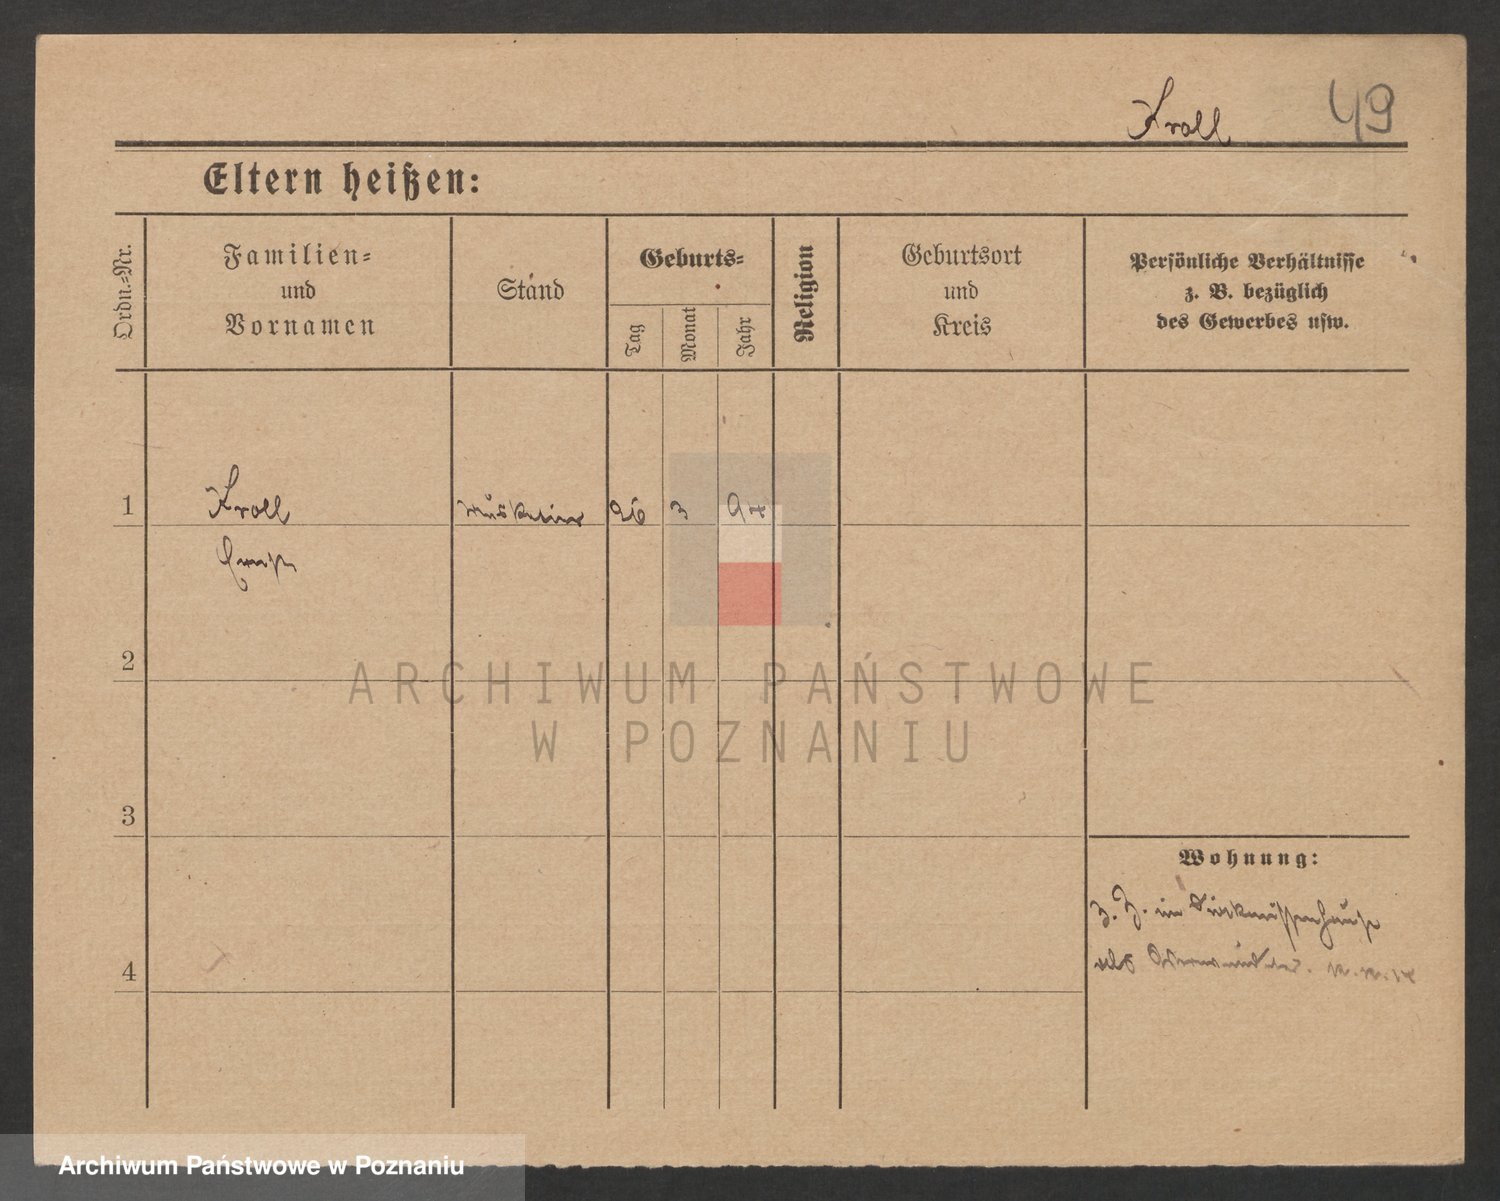 Kroll 49
Eltern heißen:
Ordn.-Nr.
Familien-
und
Vornamen
Stand
Geburts-
Tag
Monat
Jahr
Religion
Geburtsort
und
Kreis
Persönliche Verhältnisse
z. B. bezüglich
des Gewerbes usw.
1 Kroll Musketier 26 3 94
Ernst
2
3
4
Wohnung:
z. Z. im
als Verwundeter.
ARCHIWUM PAŃSTWOWE
W POZNANIU
Archiwum Państwowe w Poznaniu